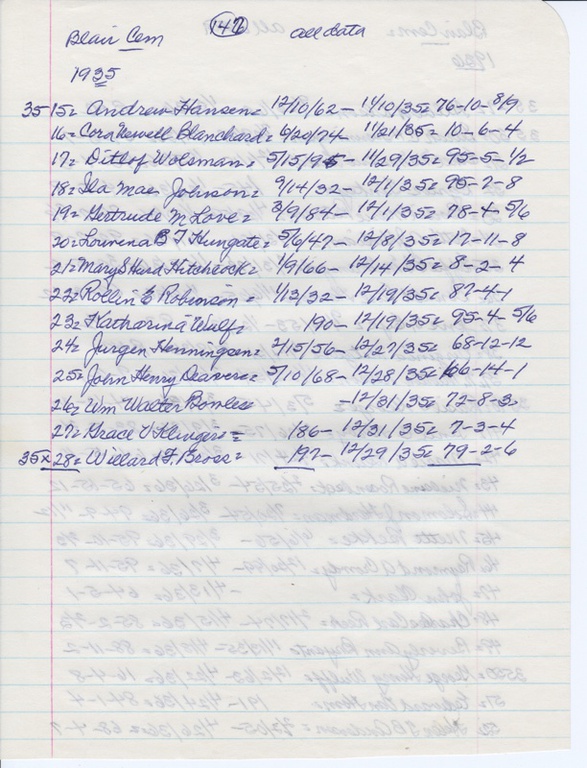 Blair Cem 147 all data
1935
3515= Andrew Hansen= 12/10/62- 11/10/35= 76-10-8/9
16= Cora Newell Blanchard= 6/20/74- 11/21/35= 10-6-4
17= Ditlof Wolsman= 5/15/95- 11/29/35= 95-5-1/2
18= Ida Mae Johnson= 9/14/32- 12/1/35= 95-7-8
19= Gertrude M Love= 3/9/84- 12/1/35= 78-4-5/6
20= Lourena B T Hungate= 5/6/47- 12/8/35= 17-11-8
21= Mary S Hurd Hitchcock= 1/9/66- 12/14/35= 8-2-4
22= Rollin E Robinson= 1/13/32- 12/19/35= 87-4-1
23= Katharina Wulf= 190- 12/19/35= 95-4-5/6
24= Jurgen Henningsen= 2/15/56- 12/27/35= 68-12-12
25= John Henry Deaver= 5/10/68- 12/28/35= 66-14-1
26= Wm Walter Bowles -12/31/35= 72-8-3
27= Grace V 186- 12/31/35= 7-3-4
35x28= Willard F. Bross= 197- 12/29/35= 79-2-6